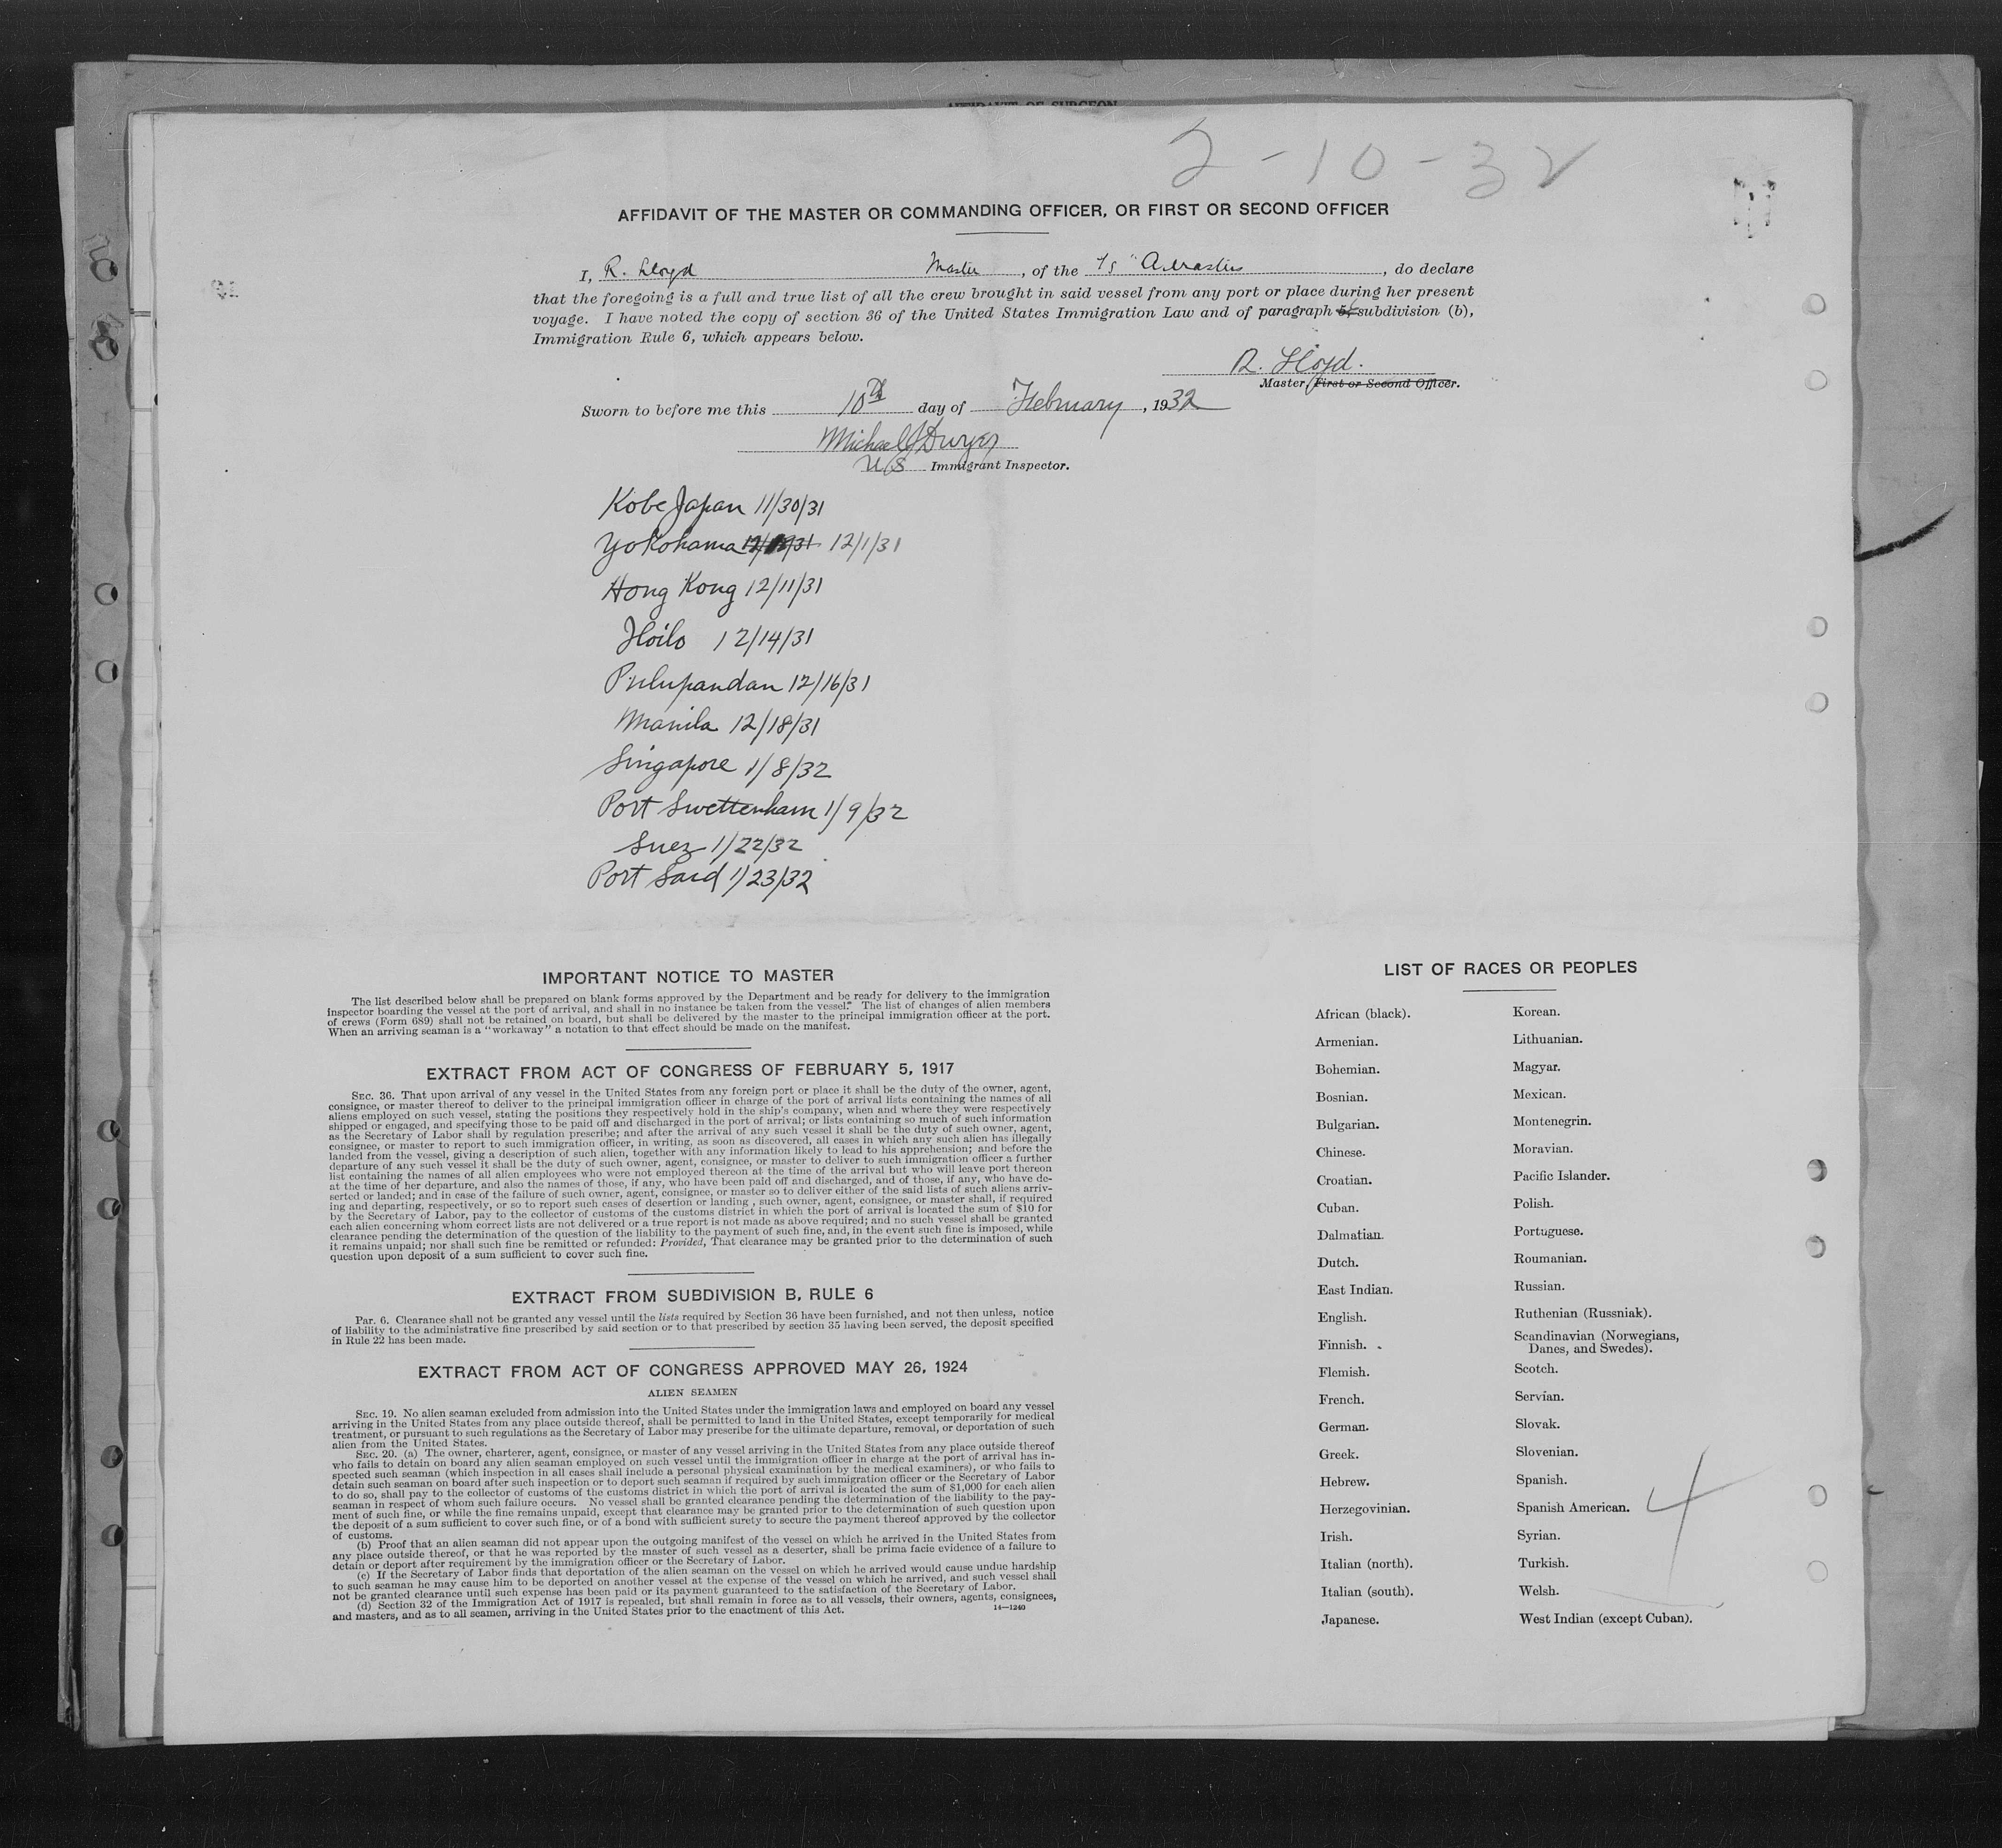 AFFIDAVIT OF SURGEON
2-10-32
AFFIDAVIT OF THE MASTER OR COMMANDING OFFICER, OR FIRST OR SECOND OFFICER
I, R. Lloyd Master, of the "Adrastus, do declare
that the foregoing is a full and true list of all the crew brought in said vessel from any port or place during her present
voyage. I have noted the copy of section 36 of the United States Immigration Law and of paragraph 5 6 subdivision (b),
Immigration Rule 6, which appears below.
R. Lloyd.
Master, First or Second Officer.
Sworn to before me this 10th day of February, 1932
Michael J Dwyer
US Immigrant Inspector.
Kobe Japan 11/30/31
Yokohama 12/1/31
Hong Kong 12/11/31
Iloilo 12/14/31
Pulupandan 12/16/31
Manila 12/18/31
Singapore 1/8/32
Port Swettenham 1/9/32
Suez 1/22/32
Port Said 1/23/32
IMPORTANT NOTICE TO MASTER
The list described below shall be prepared on blank forms approved by the Department and be ready for delivery to the immigration
inspector boarding the vessel at the port of arrival, and shall in no instance be taken from the vessel." The list of changes of alien members
of crews (Form 689) shall not be retained on board, but shall be delivered by the master to the principal immigration officer at the port.
When an arriving seaman is a "workaway" a notation to that effect should be made on the manifest.
EXTRACT FROM ACT OF CONGRESS OF FEBRUARY 5, 1917
SEC. 36. That upon arrival of any vessel in the United States from any foreign port or place it shall be the duty of the owner, agent,
consignee, or master thereof to deliver to the principal immigration officer in charge of the port of arrival lists containing the names of all
aliens employed on such vessel, stating the positions they respectively hold in the ship's company, when and where they were respectively
shipped or engaged, and specifying those to be paid off and discharged in the port of arrival; or lists containing so much of such information
as the Secretary of Labor shall by regulation prescribe; and after the arrival of any such vessel it shall be the duty of such owner, agent,
consignee, or master to report to such immigration officer, in writing, as soon as discovered, all cases in which any such alien has illegally
landed from the vessel, giving a description of such alien, together with any information likely to lead to his apprehension; and before the
departure of any such vessel it shall be the duty of such owner, agent, consignee, or master to deliver to such immigration officer a further
list containing the names of all alien employees who were not employed thereon at the time of the arrival but who will leave port thereon
at the time of her departure, and also the names of those, if any, who have been paid off and discharged, and of those, if any, who have de-
serted or landed; and in case of the failure of such owner, agent, consignee, or master so to deliver either of the said lists of such aliens arriv-
ing and departing, respectively, or so to report such cases of desertion or landing , such owner, agent, consignee, or master shall, if required
by the Secretary of Labor, pay to the collector of customs of the customs district in which the port of arrival is located the sum of $10 for
each alien concerning whom correct lists are not delivered or a true report is not made as above required; and no such vessel shall be granted
clearance pending the determination of the question of the liability to the payment of such fine, and, in the event such fine is imposed, while
it remains unpaid; nor shall such fine be remitted or refunded: Provided, That clearance may be granted prior to the determination of such
question upon deposit of a sum sufficient to cover such fine.
EXTRACT FROM SUBDIVISION B, RULE 6
Par. 6. Clearance shall not be granted any vessel until the lists required by Section 36 have been furnished, and not then unless, notice
of liability to the administrative fine prescribed by said section or to that prescribed by section 35 having been served, the deposit specified
in Rule 22 has been made.
EXTRACT FROM ACT OF CONGRESS APPROVED MAY 26, 1924
ALIEN SEAMEN
SEC. 19. No alien seaman excluded from admission into the United States under the immigration laws and employed on board any vessel
arriving in the United States from any place outside thereof, shall be permitted to land in the United States, except temporarily for medical
treatment, or pursuant to such regulations as the Secretary of Labor may prescribe for the ultimate departure, removal, or deportation of such
alien from the United States.
SEC. 20. (a) The owner, charterer, agent, consignee, or master of any vessel arriving in the United States from any place outside thereof
who fails to detain on board any alien seaman employed on such vessel until the immigration officer in charge at the port of arrival has in-
spected such seaman (which inspection in all cases shall include a personal physical examination by the medical examiners), or who fails to
detain such seaman on board after such inspection or to deport such seaman if required by such immigration officer or the Secretary of Labor
to do so, shall pay to the collector of customs of the customs district in which the port of arrival is located the sum of $1,000 for each alien
seaman in respect of whom such failure occurs. No vessel shall be granted clearance pending the determination of the liability to the pay-
ment of such fine, or while the fine remains unpaid, except that clearance may be granted prior to the determination of such question upon
the deposit of a sum sufficient to cover such fine, or of a bond with sufficient surety to secure the payment thereof approved by the collector
of customs.
(b) Proof that an alien seaman did not appear upon the outgoing manifest of the vessel on which he arrived in the United States from
any place outside thereof, or that he was reported by the master of such vessel as a deserter, shall be prima facie evidence of a failure to
detain or deport after requirement by the immigration officer or the Secretary of Labor.
(c) If the Secretary of Labor finds that deportation of the alien seaman on the vessel on which he arrived would cause undue hardship
to such seaman he may cause him to be deported on another vessel at the expense of the vessel on which he arrived, and such vessel shall
not be granted clearance until such expense has been paid or its payment guaranteed to the satisfaction of the Secretary of Labor.
(d) Section 32 of the Immigration Act of 1917 is repealed, but shall remain in force as to all vessels, their owners, agents, consignees,
and masters, and as to all seamen, arriving in the United States prior to the enactment of this Act.
14—1240
LIST OF RACES OR PEOPLES
African (black).
Armenian.
Bohemian.
Bosnian.
Bulgarian.
Chinese.
Croatian.
Cuban.
Dalmatian.
Dutch.
East Indian.
English.
Finnish.
Flemish.
French.
German.
Greek.
Hebrew.
Herzegovinian.
Irish.
Italian (north).
Italian (south).
Japanese.
Korean.
Lithuanian.
Magyar.
Mexican.
Montenegrin.
Moravian.
Pacific Islander.
Polish.
Portuguese.
Roumanian.
Russian.
Ruthenian (Russniak).
Scandinavian (Norwegians,
Danes, and Swedes).
Scotch.
Servian.
Slovak.
Slovenian.
Spanish.
Spanish American.
Syrian.
Turkish.
Welsh.
West Indian (except Cuban).
4